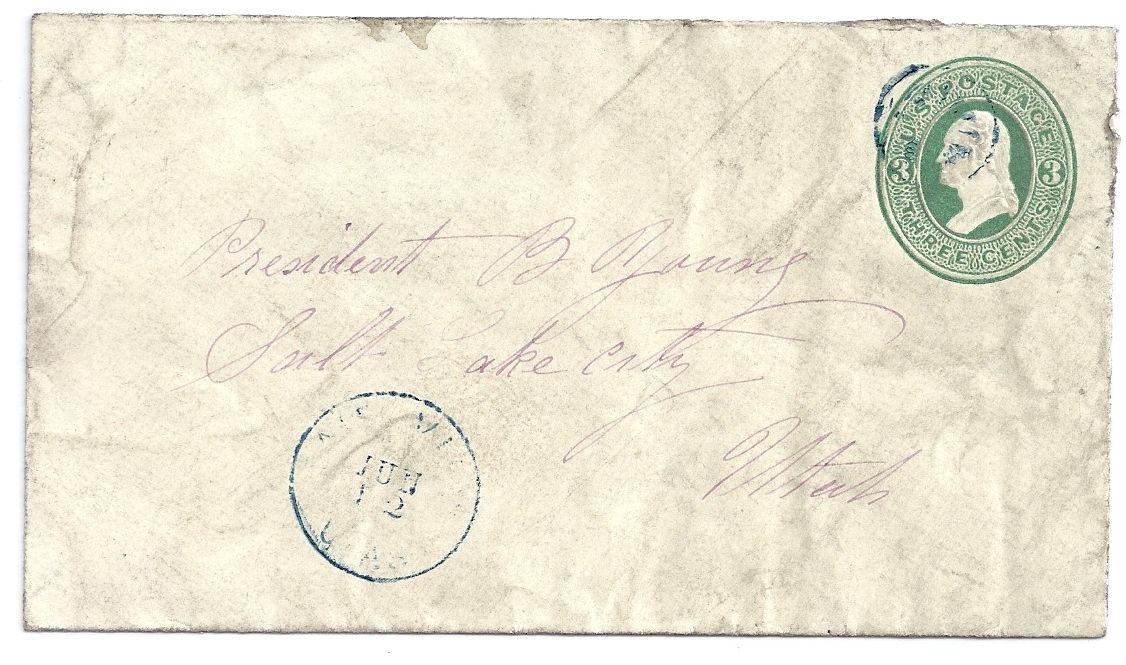 U.S. POSTAGE
3 3
THREE CENTS
President B Young
Salt Lake City
Utah
JUN
12